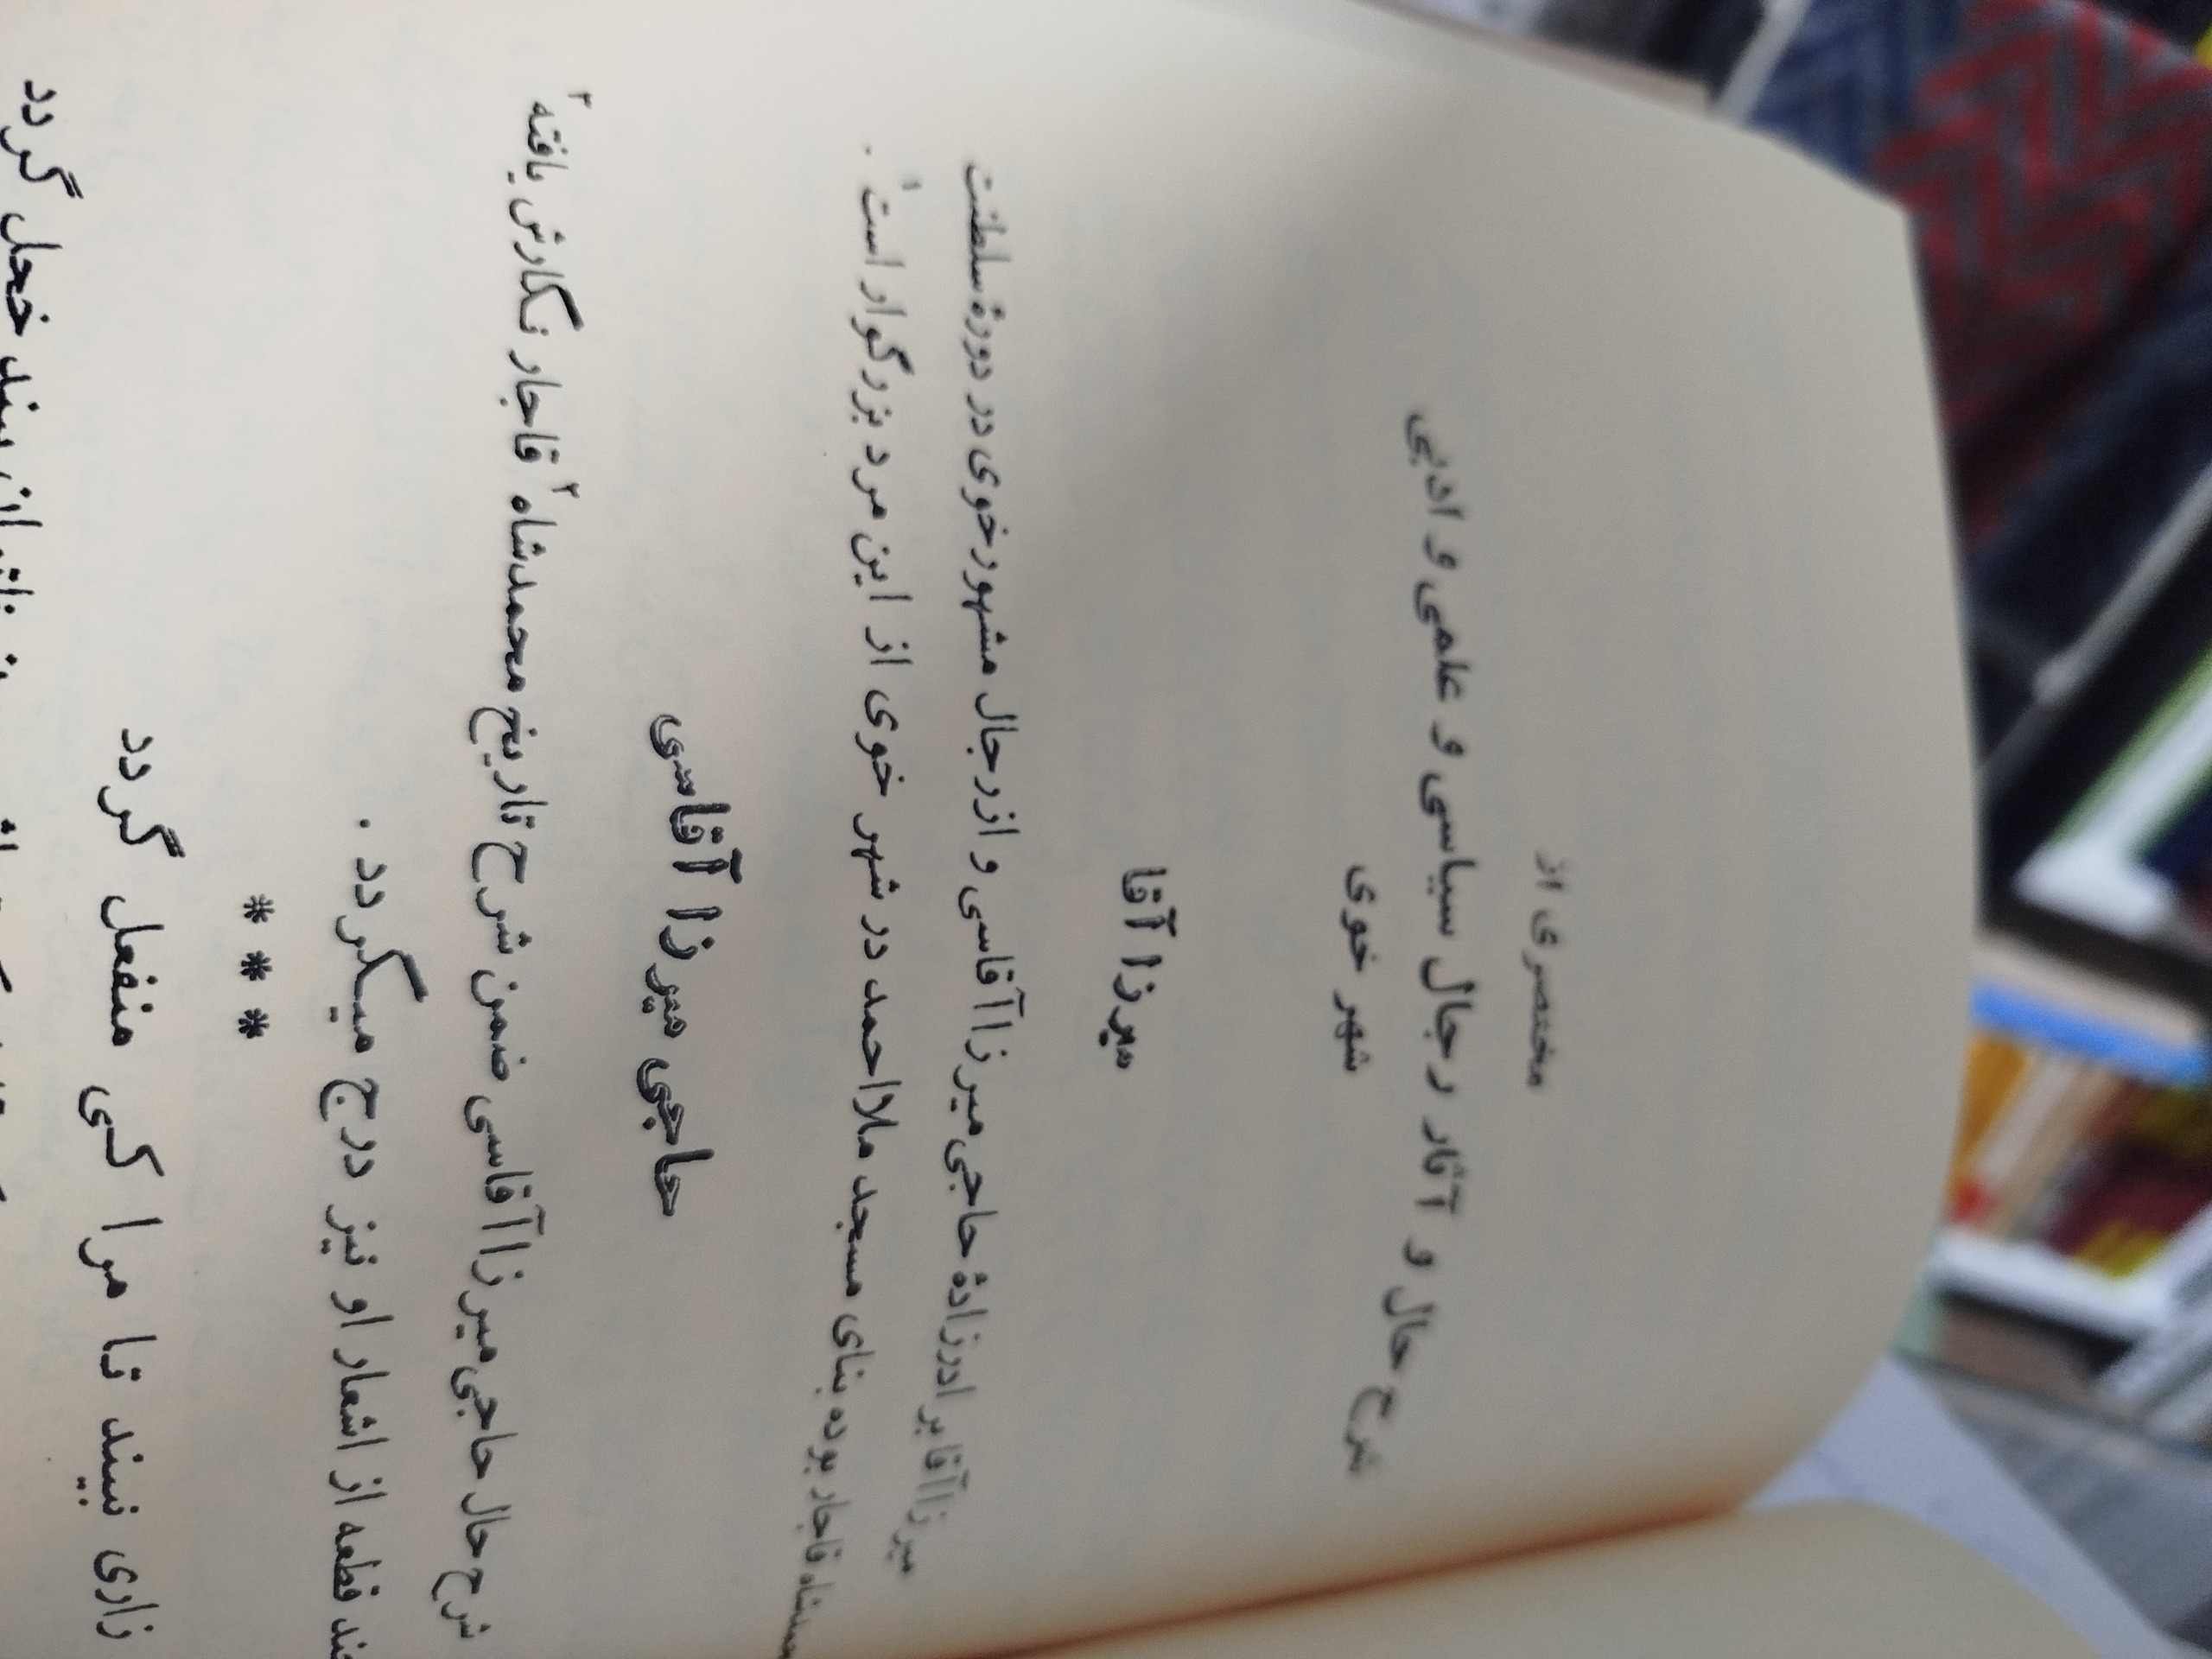 مختصری از
شرح حال و آثار رجال سیاسی و علمی و ادبی
شهر خوی
میرزا آقا
میرزا آقا برادرزادهٔ حاجی میرزا آقاسی و از رجال مشهور خوی در دورهٔ سلطنت
قاجار بوده بنای مسجد ملااحمد در شهر خوی از این مرد بزرگوار است۱ .
حاجی میرزا آقاسی
شرح حال حاجی میرزا آقاسی ضمن شرح تاریخ محمدشاه۲ قاجار نگارش یافته۳
قطعه از اشعار او نیز درج میگردد .
* * *
زاری نبیند تا مرا کی منفعل گردد
خجل گردد